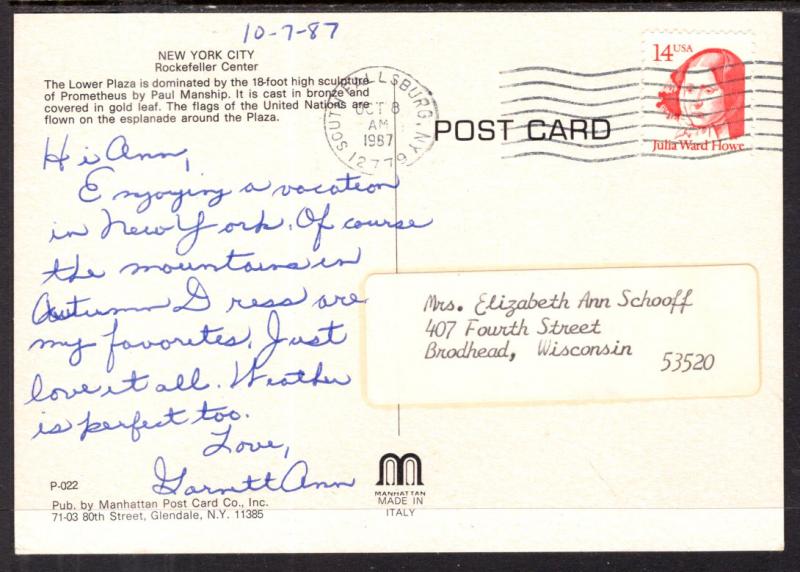 10-7-87
NEW YORK CITY
Rockefeller Center
The Lower Plaza is dominated by the 18-foot high sculpture
of Prometheus by Paul Manship. It is cast in bronze and
covered in gold leaf. The flags of the United Nations are
flown on the esplanade around the Plaza.
SOUTH FALLSBURG, NY
OCT 8
AM
1987
12779
14 USA
Julia Ward Howe
POST CARD
Hi Ann,
Enjoying a vacation
in New York. Of course
the mountains in
Autumn Dress are
my favorites. Just
love it all. Weather
is perfect too.
Love,
Garnett Ann
Mrs. Elizabeth Ann Schooff
407 Fourth Street
Brodhead, Wisconsin 53520
P-022
Pub. by Manhattan Post Card Co., Inc.
71-03 80th Street, Glendale, N.Y. 11385
MANHATTAN
MADE IN
ITALY